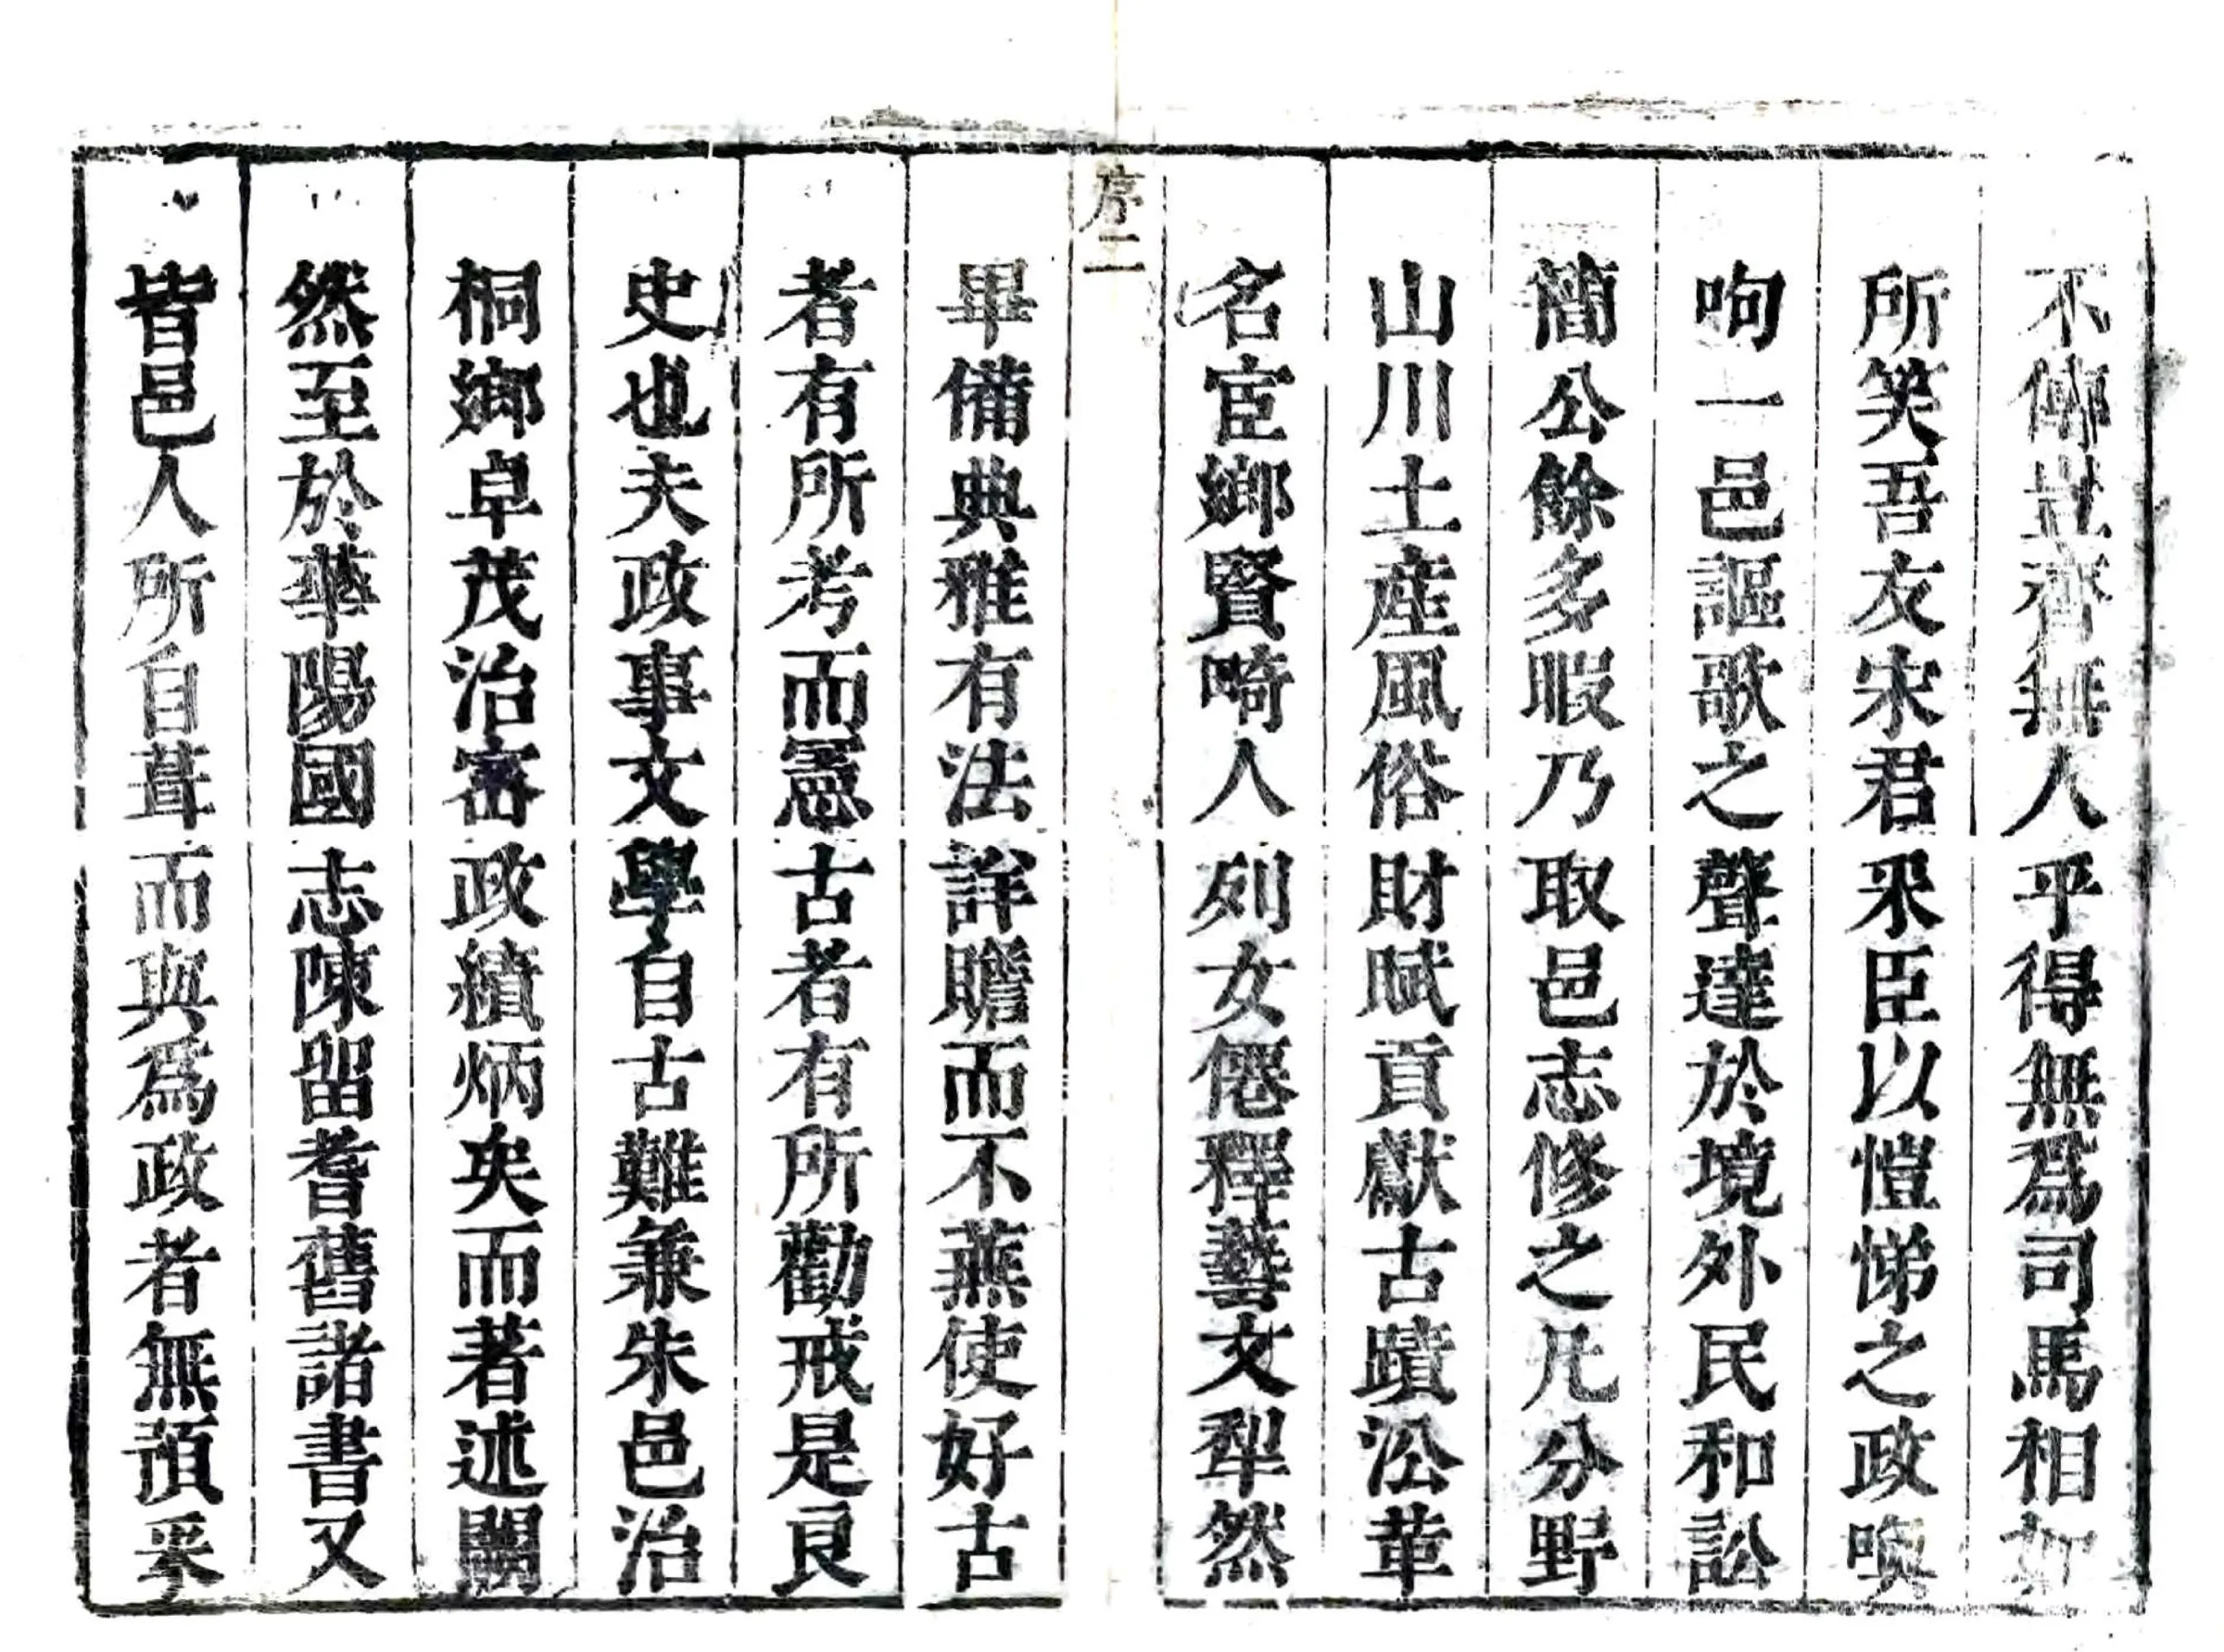 不傳豈齊無人乎得無爲司馬相如
所笑吾友宋君釆臣以愷悌之政喚
呴一邑謳歌之聲達於境外民和訟
簡公餘多暇乃取邑志修之凡分野
山川土産風俗財賦貢獻古蹟㳂革
名宦鄉賢畸人列女僊釋藝文犁然
序二
畢備典雅有法詳贍而不蕪使好古
者有所考而憲古者有所勸戒是良
史也夫政事文學自古難兼朱邑治
桐鄉卓茂治密政績炳矣而著述闕
然至於華陽國志陳留耆舊諸書又
皆邑人所自葺而與爲政者無預釆